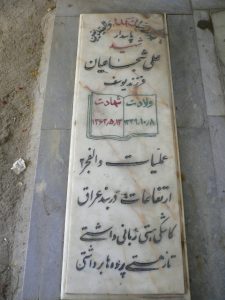 پاسدار
شهید
علی شجاعیان
فرزند یوسف
ولادت شهادت
۱۳۳۹،۱۰،۸ ۱۳۶۲،۵،۱۳
عملیات والفجر۲
ارتفاعات دربند عراق
کاشکی هستی زبانی داشتی
تا ز هستی پرده ها برداشتی